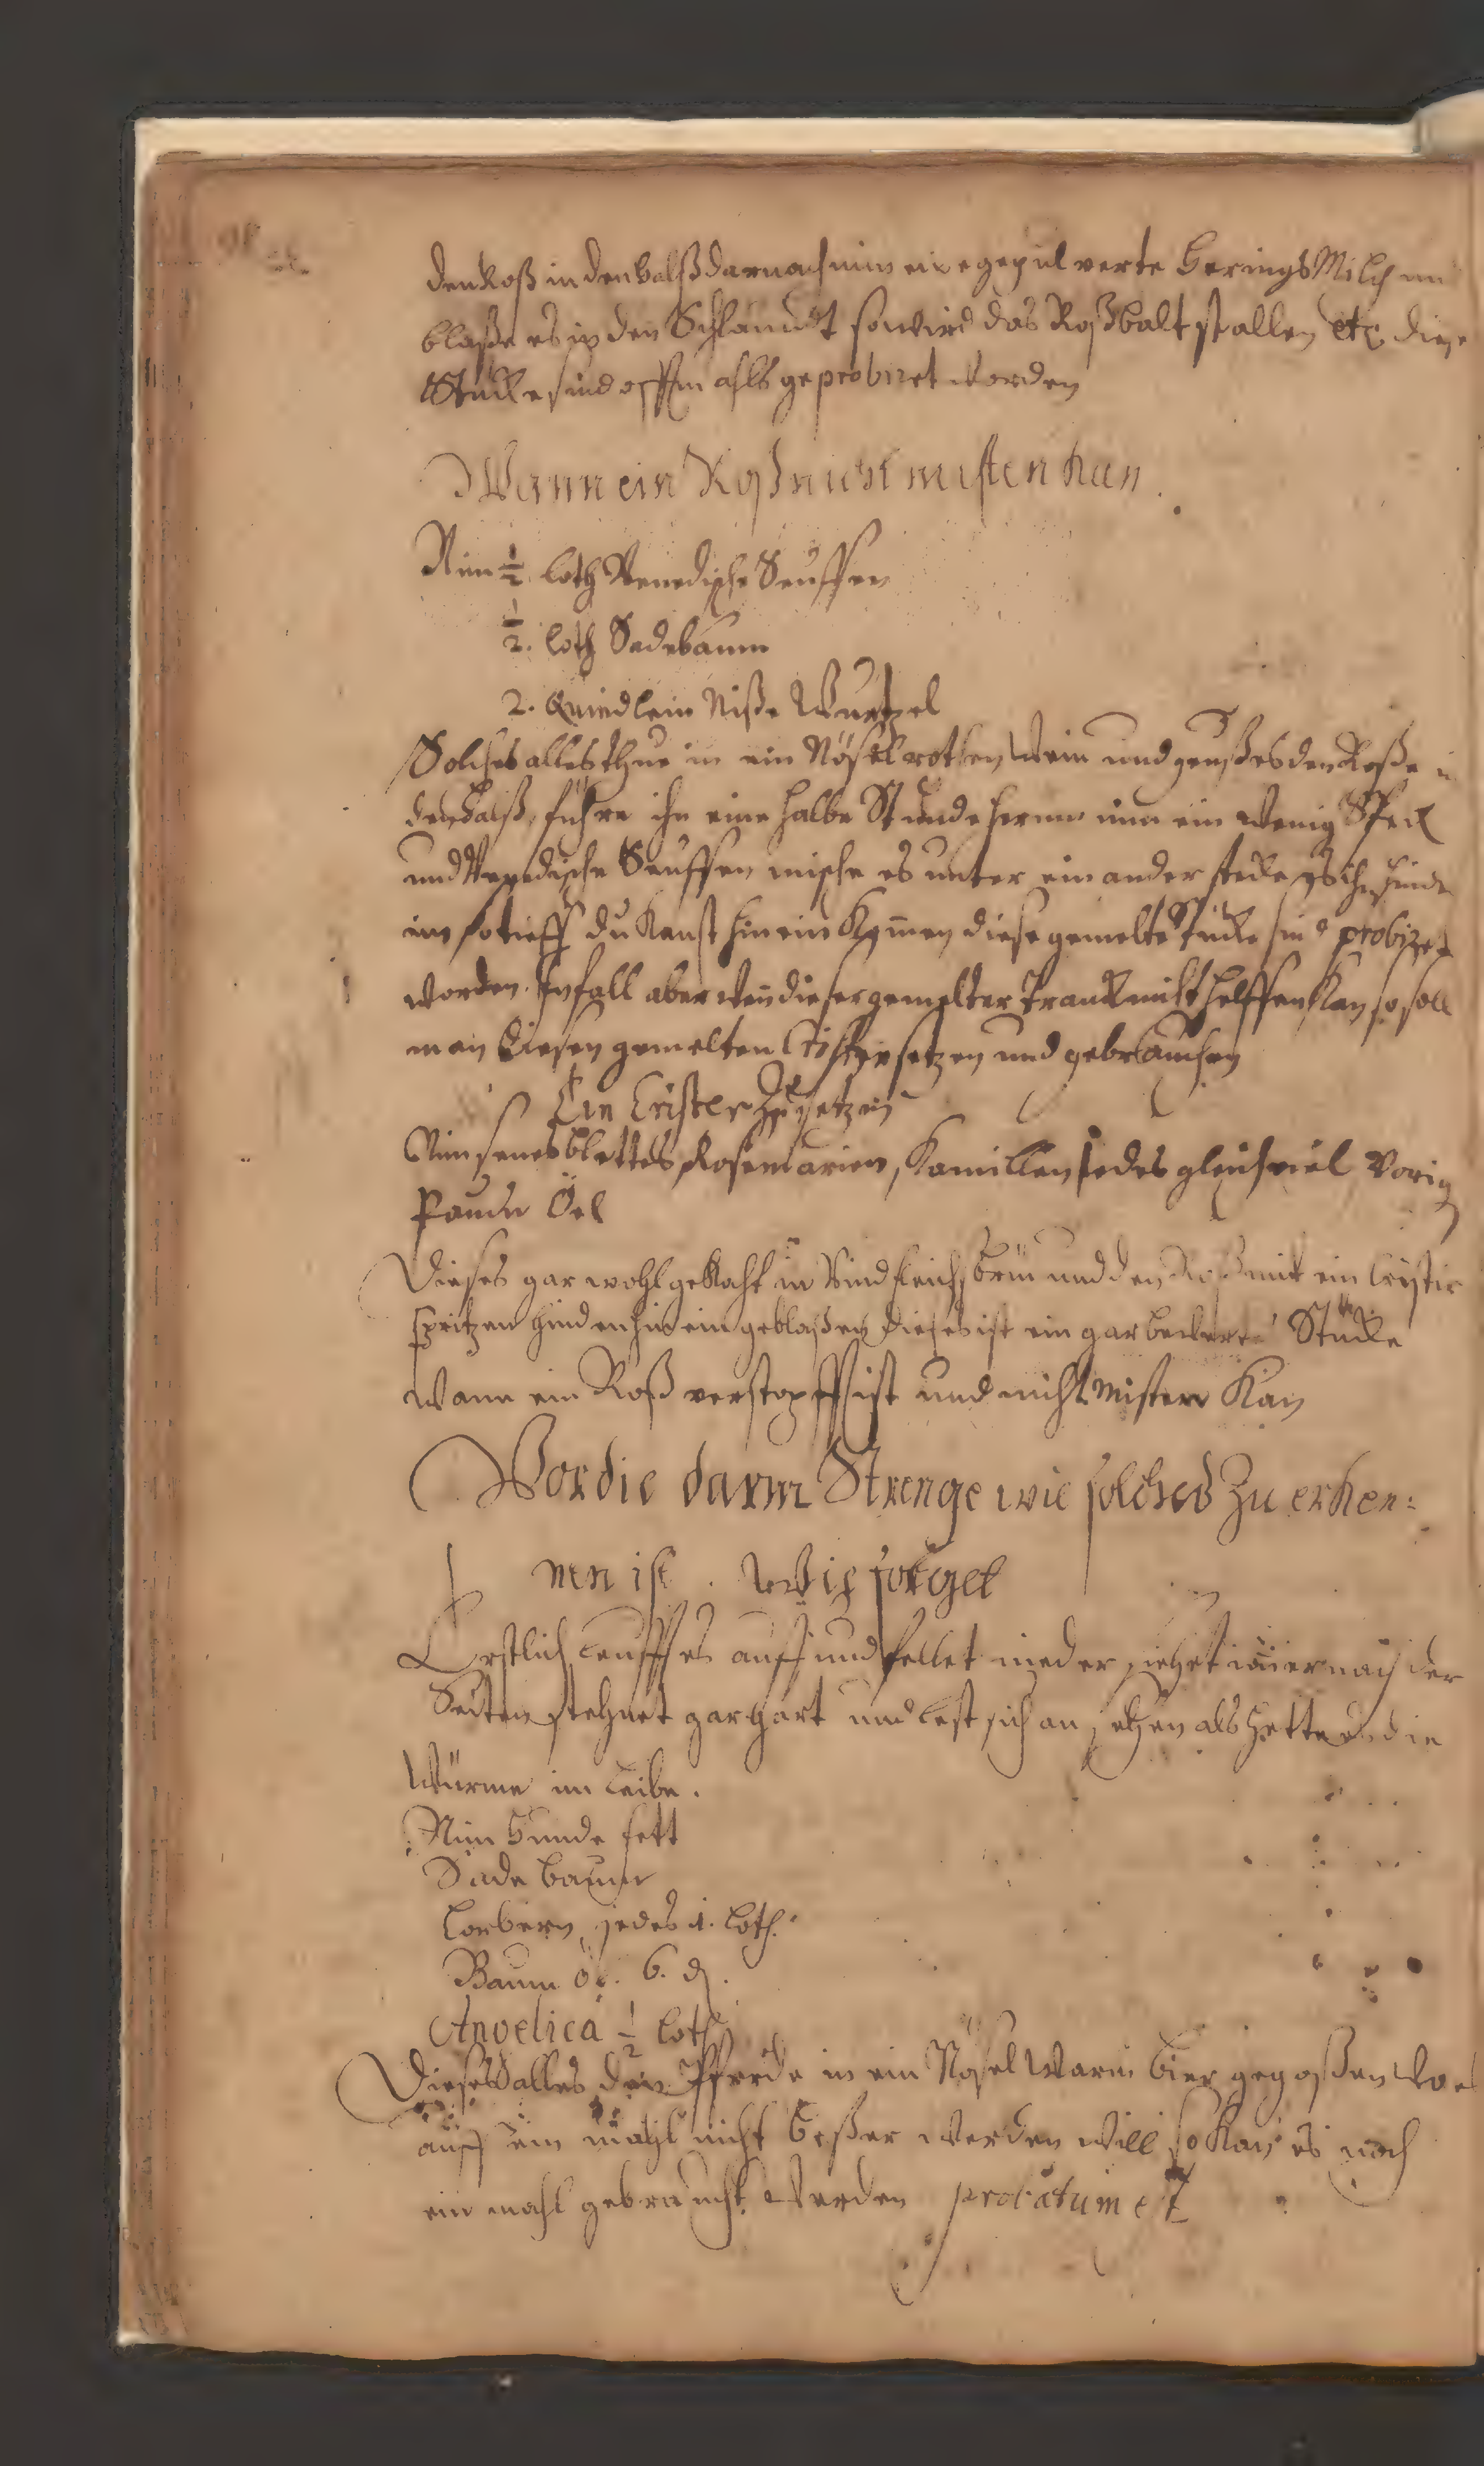 den Roß in den halß darnach nim eine gepulverte Herings Milch un
blaße es in den Schlaundt so wird das Roß balt stallen etc. diese
Stucke sind offtmahls geprobiret worden
Wann ein Roß nicht misten kan.
Nim ½ loth Venedische Seuffen
½. loth Sadebaum
2. Quindlein Niße Wurtzel
Solches alles thue in ein Nösel rothen Wein und geuß es den Roße in
den halß, führe ihn eine halbe Stunde herum nim ein wenig Speck
und Venedische Seuffen mische es unter ein ander stecke es ihn hinde
ins so tieff du kanst hinein kommen diese gemelte Stücke sind probiret
worden. Im fall aber wen dieser gemelter Tranck nicht helffen kan so soll
man diesen gemelten Cristir setzen und gebrauchen
Ein Crister zu setzen
Nim senes bletter Rosemarien, Kamillen jedes gleich viel Vorig
Oel
Dieses gar wohl gekocht in Rindfleisch brüü und den Roß mit ein Cristir
spritzen hinden hin ein geblaßen dieses ist ein gar bewerte Stücke
wann ein Roß verstopfft ist und nicht Misten kan
Vor die darm Strenge wie solches zu erken:
nen ist. wie folget
Erstlich leufft es auff und fellet nieder siehet imer nach der
Seiten stehnet gar hart und lest sich an sehen als hette es die
Würme im Leibe.
Nim Hunde fett
Sade baum
Lorbern, jedes 1. loth.
Baum öl. 6. d.
Angelica ½ loth
Dieses alles den Pferde in ein Nösel warm bier gegoßen wo es
auff ein mahl nicht beßer werden will so kan es noch
ein mahl gebraucht werden probatum est